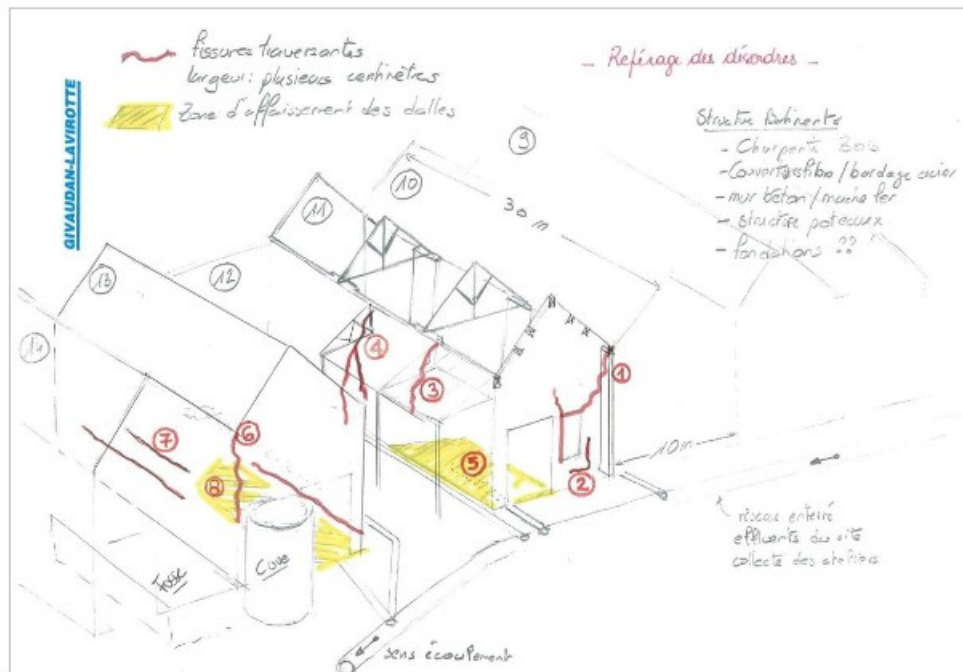 fissures traversantes
largeur : plusieurs centimètres
Zone d'affaissement des dalles
- Repérage des désordres -
GIVAUDAN-LAVIROTTE
Structure Batiments
- Charpente Bois
- Couverture fibro/bardage acier
- mur béton/machefer
- structure poteaux
- fondations ??
9
10
30 m
11
12
13
14
4
3
1
5
2
10m
6
7
8
Fosse
Cuve
réseau enterré
effluents du site
collecte des ateliers
sens écoulement